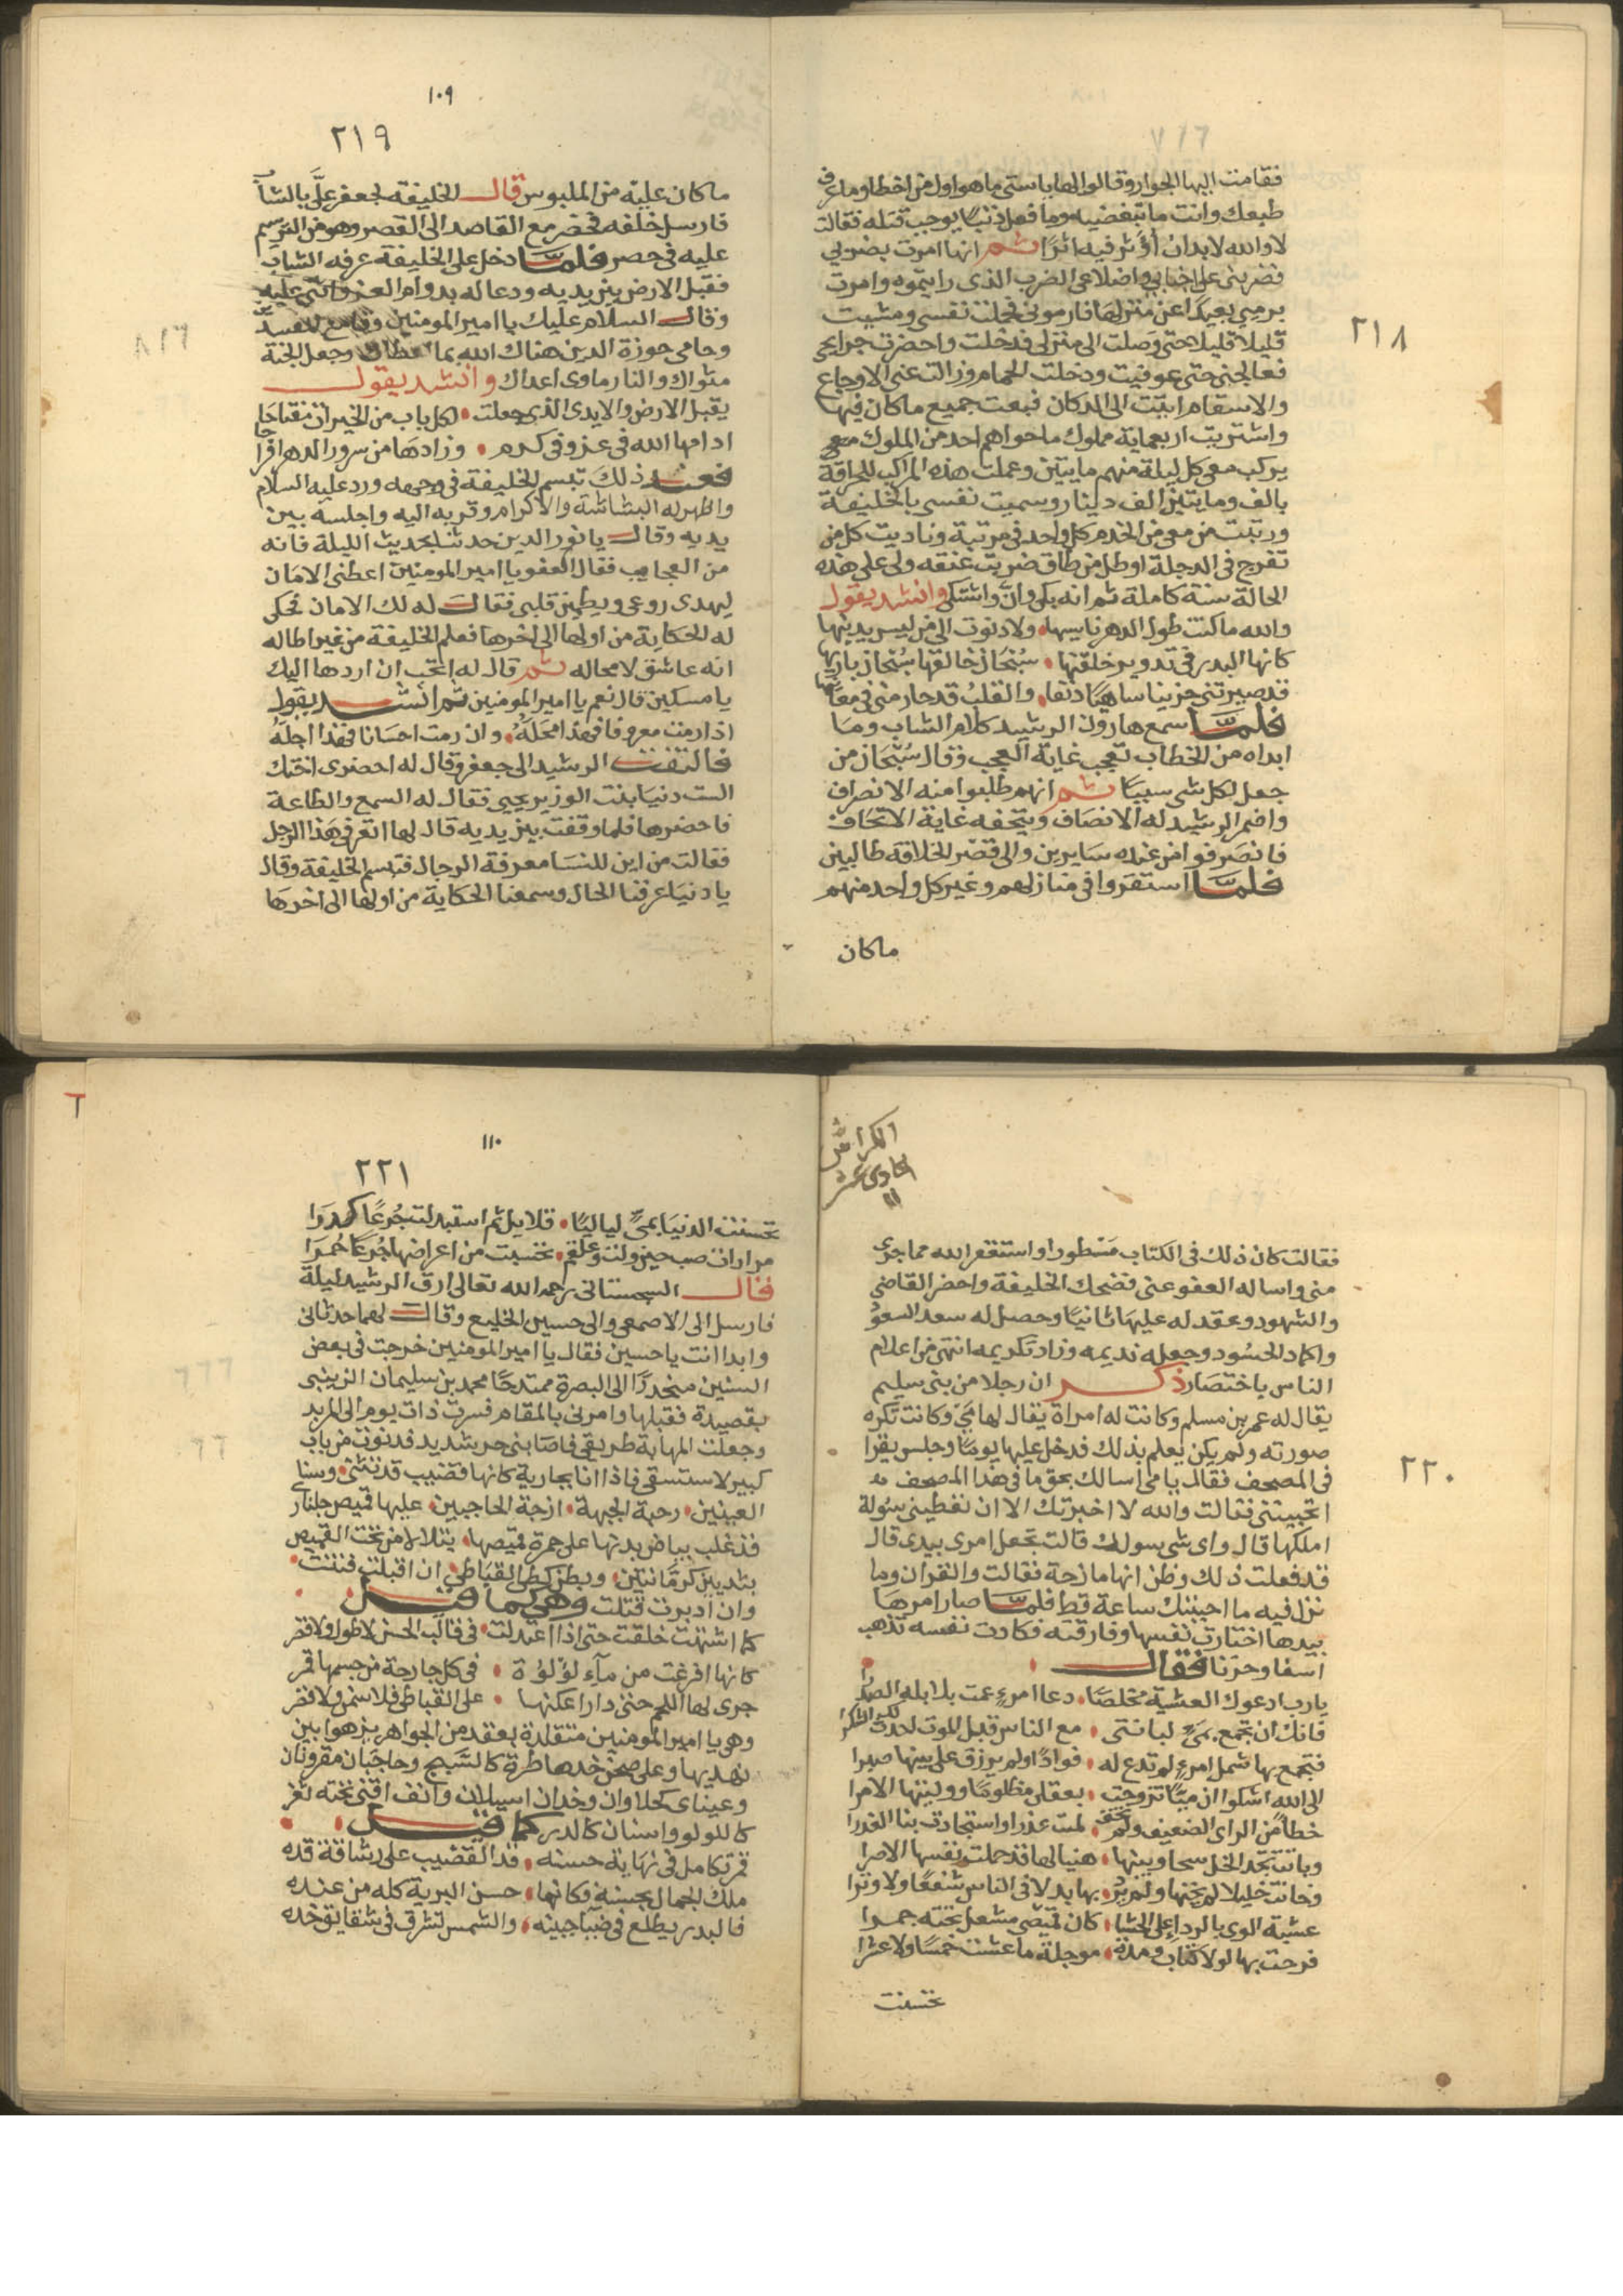 ٢١٨
فقامت اليها الجوار وقالوا لها يا ستى ما هو اول من اخطا وما عرف
طبعك وانت ما تبغضيه وما فعل ذنبًا يوجب قتله فقالت
لا والله لا بد ان أؤثر فيه اثرًا ثم انها امرت بضربي
فضربنى على اجنابي واضلاعى الضرب الذى رايتموه وامرت
برميي بعيدًا عن منزلها فارمونى فحملت نفسى ومشيت
قليلا قليلا حتى وصلت الى منزلى فدخلت واحضرت جرايحى
فعالجنى حتى عوفيت ودخلت الحمام وزالت عنى الاوجاع
والاسقام اتيت الى الدكان فبعت جميع ما كان فيها
واشتريت اربعماية مملوك ما حواهم احد من الملوك معى
يركب معى كل ليلة منهم مايتين وعملت هذه المراكب للحراقة
بالف ومايتين الف دينار وسميت نفسى بالخليفة
ورتبت من معى من الخدم كل واحد فى مرتبة وناديت كل من
تفرج فى الدجلة او طل من طاق ضربت عنقه ولى على هذه
الحالة سنة كاملة ثم انه بكى وانّ واشتكى وانشد يقول
والله ما كنت طول الدهر ناسيها ولا دنوت الى من ليس يدنيها
كانها البدر فى تدوير خلقتها سُبْحَان خالقها سُبْحَان باريها
قد صيرتنى حزينا ساهيًا دنفا والقلبُ قد حار منى فى معانيها
فلمّا سمع هارون الرشيد كلام الشاب وما
ابداه من الخطاب تعجب غاية العجب وقال سُبْحَان من
جعل لكل شى سببًا ثم انهم طلبوا منه الانصراف
واضمر الرشيد له الانصاف ويتحفه غاية الاتحاف
فانصرفوا من عنده سايرين والى قصر الخلافة طالبين
فلمّا استقروا فى منازلهم وغير كل واحد منهم
ماكان
١٠٩
٢١٩
ما كان عليه من الملبوس قال الخليفة لجعفر علىّ بالشاب
فارسل خلفه فحضر مع القاصد الى القصر وهو من الترسيم
عليه فى حصر فلمّا دخل على الخليفة عرفه الشاب
فقبل الارض بين يديه ودعا له بدوام العز واثنى عليه
وقال السلام عليك يا امير المومنين وقامع المفسدين
وحامى حوزة الدين هناك الله بما اعطاك وجعل الجنة
مثواك والنار ماوى اعداك وانشد يقول
يقبل الارض والايدى الذى جعلت لكل باب من الخيرات مفتاحا
ادامها الله فى عز وفى كرم وزادها من سرور الدهر افراحا
فعند ذلك تبسم الخليفة فى وجهه ورد عليه السلام
واظهر له البشاشة والاكرام وقربه اليه واجلسه بين
يديه وقال يا نور الدين حدثنا بحديث الليلة فانه
من العجايب فقال العفو يا امير المومنين اعطنى الامان
ليهدى روعى ويطمين قلبى فقال له لك الامان فحكى
له الحكاية من اولها الى اخرها فعلم الخليفة من غير اطاله
انه عاشق لا محاله ثم قال له اتحب ان اردها اليك
يا مسكين قال نعم يا امير المومنين ثم انشد يقول
اذا رمت معروفا فهذا محَلَّهُ وان رمت احسانا فهذا اجلّهُ
فالتفت الرشيد الى جعفر وقال له احضرى اختك
الست دنيا بنت الوزير يحيى فقال له السمع والطاعة
فاحضرها فلما وقفت بين يديه قال لها اتعرفى هذا الرجل
فقالت من اين للنسا معرفة الرجال فتبسم الخليفة وقال
يا دنيا عرفنا الحال وسمعنا الحكاية من اولها الى اخرها
الكراس
الحادى عشر
١١
٢٢٠
فقالت كان ذلك فى الكتاب مسطورا واستغفر الله مما جرى
منى واساله العفو عنى فضحك الخليفة واحضر القاضي
والشهود وعقد له عليها ثانيًا وحصل له سعد السعود
واكماد الحسود وجعله نديمه وزاد تكريمه انتهى من اعلام
الناس باختصار ذكر ان رجلا من بنى سليم
يقال له عمر بن مسلم وكانت له امراة يقال لها مىّ وكانت تكره
صورته ولم يكن يعلم بذلك فدخل عليها يومًا وجلس يقرا
فى المصحف فقال يا مى اسالك بحق ما فى هذا المصحف
اتحبيننى فقالت والله لا اخبرتك الا ان تعطينى سُولة
املكها قال واى شى سولك قالت تجعل امرى بيدى قال
قد فعلت ذلك وظن انها مازحة فقالت والقران وما
نزل فيه ما احببتك ساعة قط فلمّا صار امرها
بيدها اختارت نفسها وفارقته فكادت نفسه تذهب
اسفا وحزنا فقال
يارب ادعوك العشية مخلصًا دعا امرءٍ عمت بلابله الصدرا
فانك ان تجمع بمىّ لبانتى مع الناس قبل الموت لحدث لك الشكرا
فتجمع بها شمل امرءٍ لم تدع له فوادًا ولم يرزق على بينها صبرا
الى الله اشكوا ان ميًّا تزوجت بعقلى مظلومًا ووليتها الامرا
خطأً من الراى الضعيف ولم تخف لمت عذرا واستجادت بنا الغدرا
وباتت تجد الخل بيننا وبينها هنيا لها قد حملت نفسها الاصرا
وخانت خليلا لم يخنها ولم يرد بها بدلا فى الناس شفعًا ولا وترا
عشية الوى بالرداء على الحشا كان قميصى مشعل تحته جمرا
فرحت بها لولا كتاب ومدة موجلة ما عشت خمسًا ولا عشرا
تحسنت
١١٠
٢٢١
تحسنت الدنيا بمىّ لياليًا قلايل ثم استبدلت جُرعًا كدرا
مرارات صب حين ولت وعلقم تحسبت من اعراضها جُرعًا حُمرا
فقال السجستانى رحمه الله تعالى ارق الرشيد ليلة
فارسل الى الاصمعى والى حسين الخليع وقال لهما حدثانى
وابدا انت يا حسين فقال يا امير المومنين خرجت فى بعض
السنين منحدرًا الى البصرة ممتدحًا محمد بن سليمان الزينبى
بقصيدة فقبلها وامرنى بالمقام فسرت ذات يوم الى المربد
وجعلت المهابة طريقى فاصابنى حر شديد فدنوت من باب
كبير لاستسقى فاذا انا بجارية كانها قضيب قد تثنى وسناى
العينين رحبة الجبهة ازجة الحاجبين عليها قميص جلنار
قد غلب بياض بدنها على حمرة قميصها يتلالا من تحت القميص
بثديين كرمّانتين وبطن كطى القباطى ان اقبلت فتنت
وان ادبرت قتلت وهى كما قيل
كما اشتهت خلقت حتى اذا اعتدلت فى قالب الحسن لا طول ولا قصر
كانها افرغت من مآء لؤلؤة فى كل جارحة من جسمها قمر
جرى لها اللحم حتى دار اعكنها على القباطى فلا سمن ولا قصر
وهى يا امير المومنين متقلدة بعقد من الجواهر يزهوا بين
نهديها وعلى صحن خدها طرة كالسبج وحاجبان مقرونان
وعيناى كحلاوان وخدان اسيلان وانف اقنى تحته ثغر
كاللولو واسنان كالدر كما قيل
قمر تكامل فى نهاية حسنه قد القضيب على رشاقة قده
ملك الجمال بحسنه وكانما حسن البرية كله من عنده
فالبدر يطلع فى ضيا جبينه والشمس تشرق فى شقايق خده